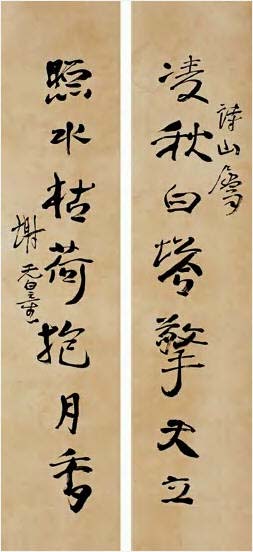 凌秋白塔擎天立
詩山
照水枯荷抱月香
謝无量